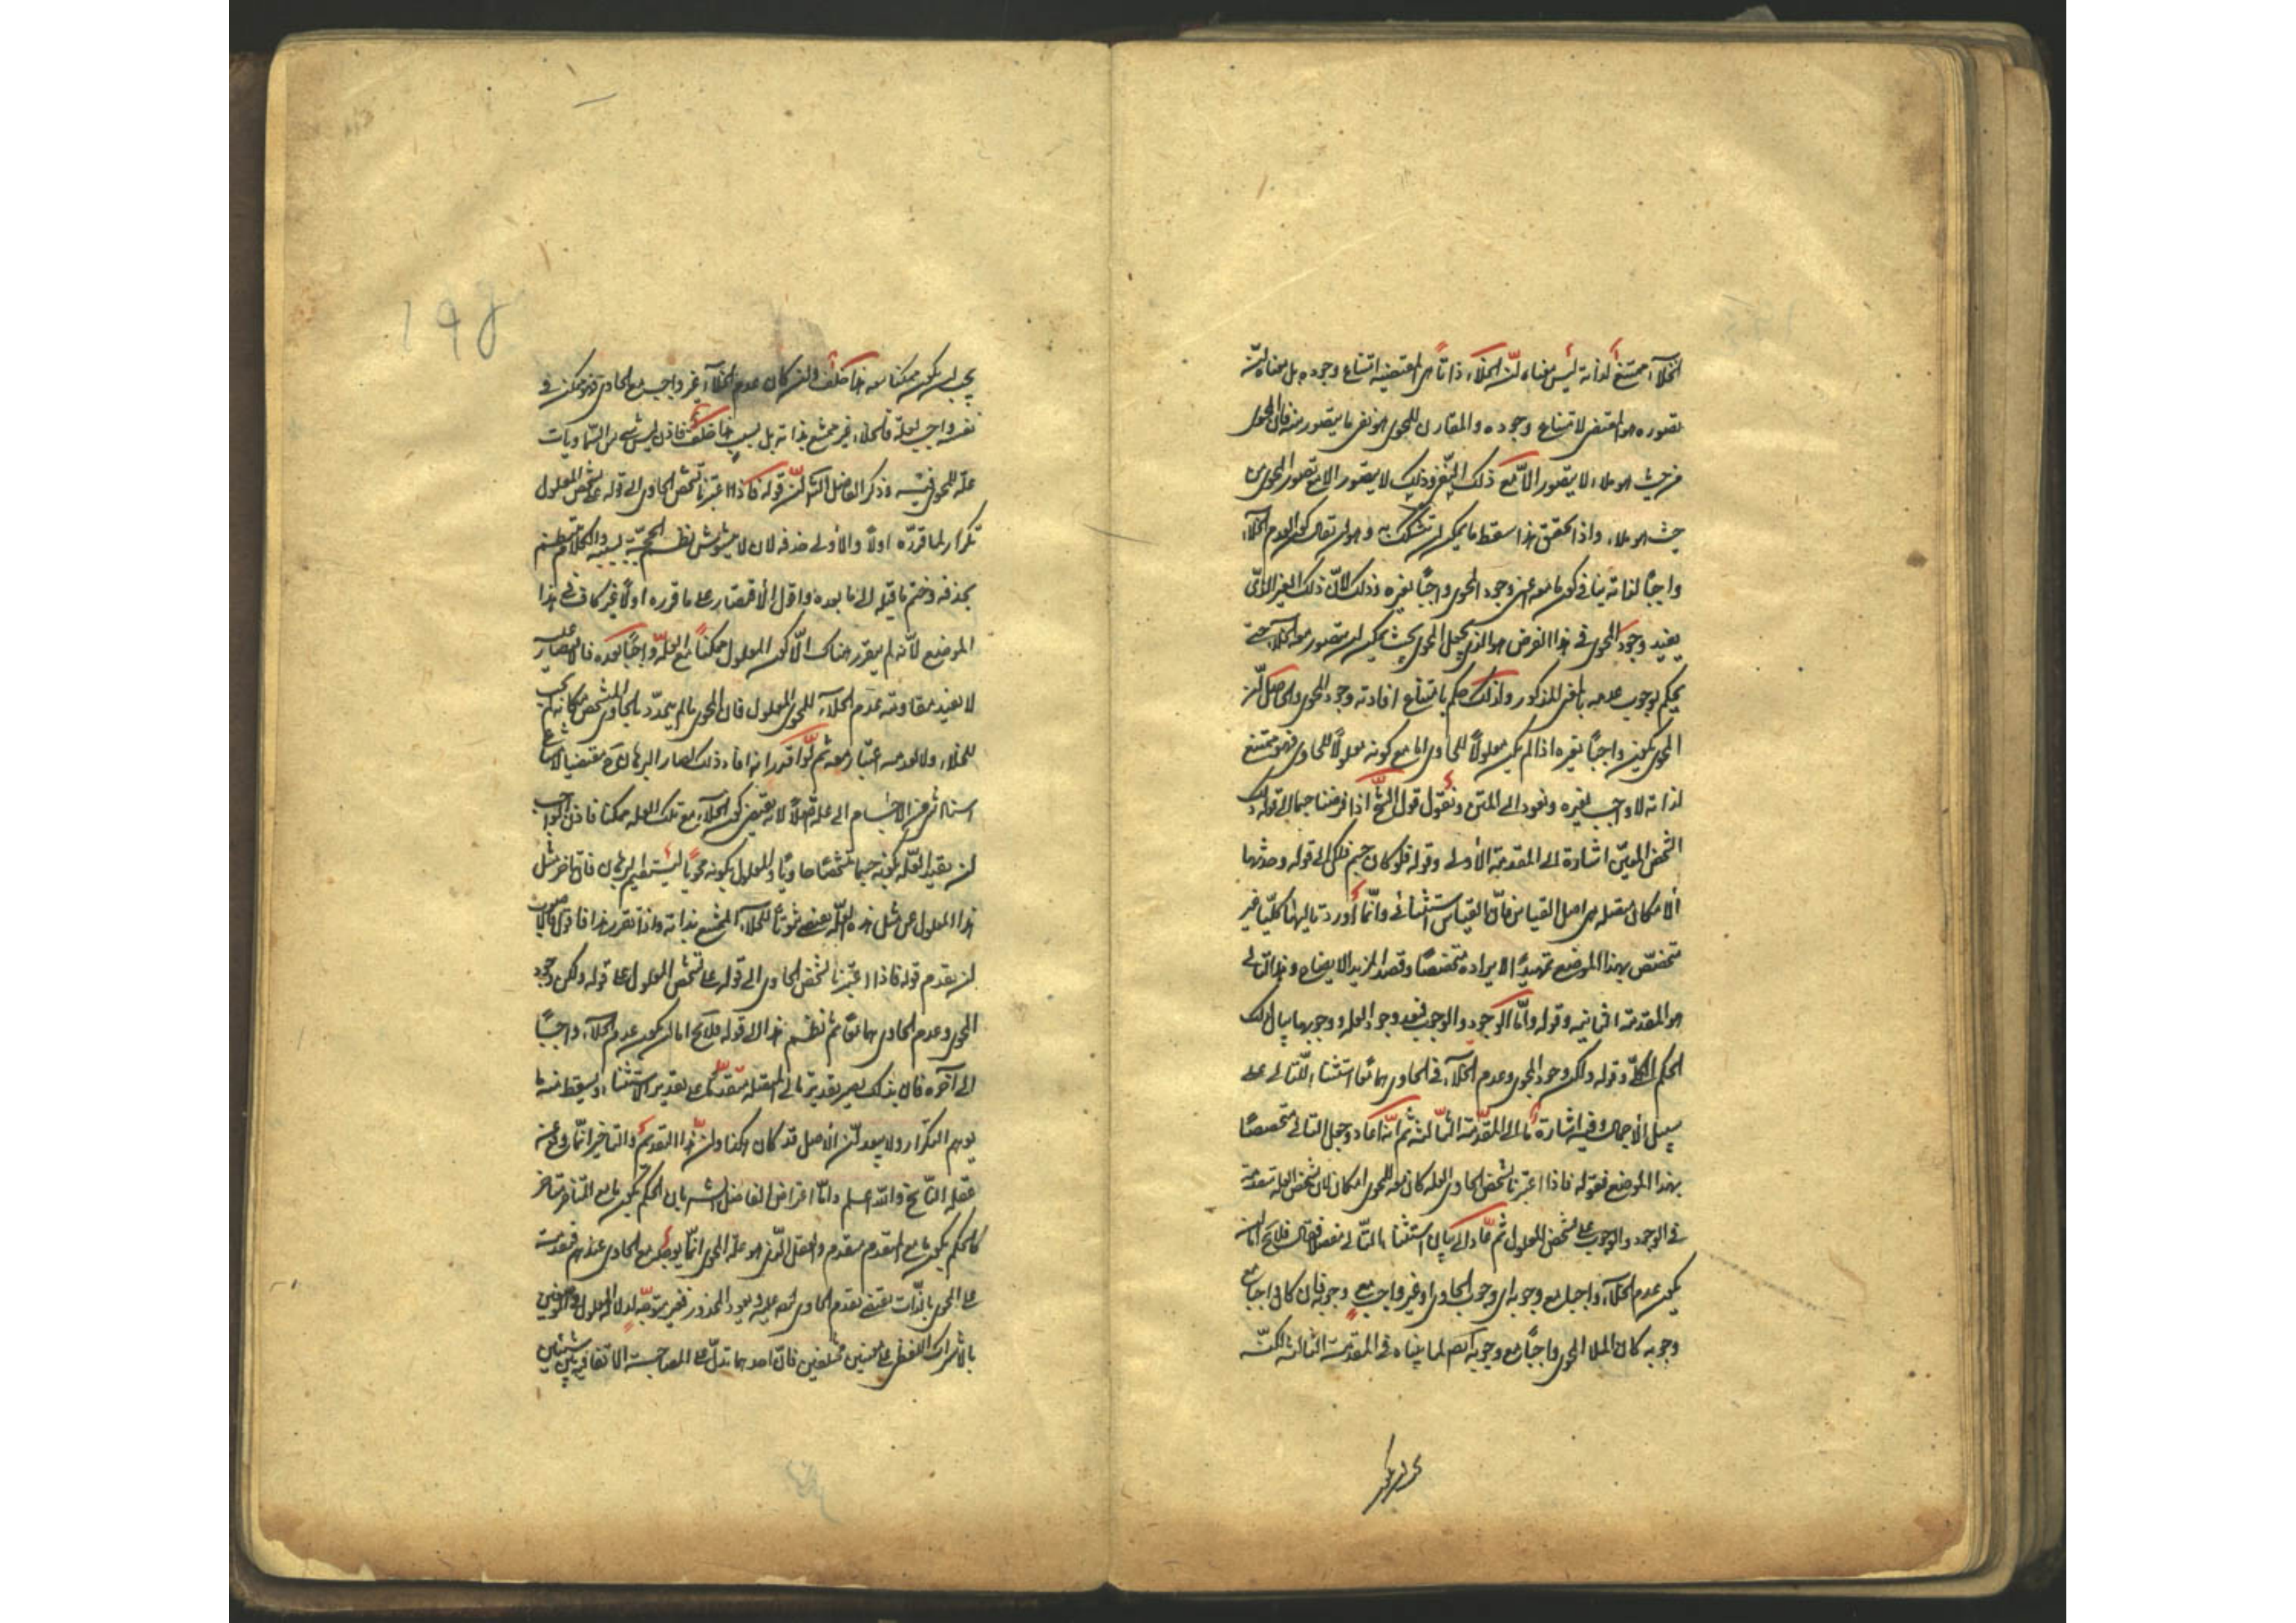 الخلاء ممتنع لذاته ليس معناه انّ للخلاء ذاتاً هي المقتضية لامتناع وجوده بل معناه انّ
تصوره هو المقتضى لامتناع وجوده والمقارن للمحوى هو نفى ما يتصور منه فان المحوى
من حيث هو ملاء لا يتصور الّا مع ذلك النفى وذلك لا يتصور الا مع تصور المحوى من
حيث هو ملاء واذا تحقق هذا سقط ما يمكن ان يتشكك به وهو ان يقال كون عدم الخلاء
واجباً لذاته ينافى كون ما معه اعنى وجود المحوى واجباً بغيره وذلك لانّ ذلك الغير الذى
يفيد وجود المحوى فى هذا الفرض هو الذى يجعل المحوى بحيث يمكن ان يتصور معه الخلاء حتى
يحكم بوجوب عدمه بالغير المذكور ولذلك حكم بامتناع افادته وجود المحوى والحاصل انّ
المحوى يكون واجباً بغيره اذا لم يكن معلولاً للحاوى اما مع كونه معلولاً للحاوى فهو ممتنع
لذاته لا واجب بغيره ونعود الى المتن ونقول قول الشيخ اذا فرضنا جسما الى قوله ذلك
الشخص المعيّن اشارة الى المقدمة الأولى وقوله فلو كان جسم فلكى الى قوله وجدتها
الأمكان متصلة هى اصل القياس فانّ القياس استثنائى وانّما أورد تاليها كليّا غير
متخصّص بهذا الموضع تمهيداً لايراده متخصصاً وقصدا لمزيد الايضاح وهذا التالى
هو المقدمة الثانيه وقوله وأمّا الوجود والوجوب فبعد وجود العلة ووجوبها بيان لذلك
الحكم الكلّى وقوله ولكن وجود المحوى وعدم الخلاء فى الحاوى هما معا استثناء للتالى على
سبيل الأجمال وفيه اشارة ما الى المقدّمة الثالثة ثم انّه اعاد وجعل التالى متخصصاً
بهذا الموضع فقوله فاذا اعتبرنا تشخص الحاوى العلة كان معه للمحوى امكان لان تشخص العلة متقدمة
فى الوجود والوجوب على تشخص المعلول ثم عاد الى بيان استثناء التالى مفصلا فقال فلا يخ اما ان
يكون عدم الخلاء واجبا مع وجوبه اى وجوب الحاوى او غير واجب مع وجوبه فان كان واجبا مع
وجوبه كان الملا المحوى واجباً مع وجوبه ايضا لما بيناه فى المقدمة الثالثة لكنّه
يجب ان يكون
يجب ان يكون ممكنا معه هذا خلف وان كان عدم الخلاء غير واجب مع الحاوى فهو ممكن فى
نفسه واجب بعلة فالخلاء غير ممتنع بذاته بل بسبب هذا خلف فاذن ليس شىء من السّماويات
علة للمحوى فيه وذكر الفاضل الشارح انّ قوله فاذا اعتبرنا تشخص الحاوى الى قوله على تشخص المعلول
تكرار لما قرّره اولاً والأولى حذفه لان لا يتشوش نظم الحجة بسببه والكلام منتظم
بحذفه وضم ما قبله الى ما بعده واقول الأقتصار على ما قرره اولاً غير كاف فى هذا
الموضع لأنه لم يتقرر هناك الّا كون المعلول ممكناً مع العلّة واجباً بعده فالاقتصار عليه
لا يفيد مقاومة عدم الخلاء للمحوى المعلول فان المحوى ما لم يتحدّد بالحاوى المتشخص مكانه لم يجب
للخلاء ولا لعدمه اعتبار معه ثم لو اقتصر انه افاد ذلك لصار البرهان مقتضيا لامتناع
استناد شىء من الأجسام الى علة اصلاً لانه يقتضى كون الخلاء مع تلك العلة ممكنا فاذن الواجب
ان تقيد العلّة بكونه جسما متشخصاً حاوياً والمعلول بكونه محوياً ليستقيم البرهان فان تاخر مثل
هذا المعلول عن مثل هذه العلّة يقتضى ثبوتاً للخلاء الممتنع بذاته واذا تقرر هذا فاقول الأصوب
ان يقدم قوله فاذا اعتبرنا تشخص الحاوى الى قوله على تشخص المعلول على قوله ولكن وجود
المحوى وعدم الحاوى هما معاً ثم نظم هذا الى قوله فلا يخ اما ان يكون عدم الخلاء واجباً
الى آخره فان بذلك يصير تقدير تالى المتصله متقدّما على تقدير الاستثناء ويسقط منه ما
يوهم التكرار ولا يبعد انّ الأصل قد كان هكذا وانّ هذا التقديم والتاخير انّما وقع عن
غفلة النّاسخ والله اعلم وامّا اعتراض الفاضل الشارح بان الحكم بكون ما مع المتاخر متاخر
كالحكم بكون ما مع المتقدم متقدم والعقل الّذى هو علة المحوى انّما يوجد مع الحاوى عندهم فتقدمه
على المحوى بالذّات يقتضى تقدم الحاوى ايضا عليه ويعود المحذور فغير متوجّه لدلالة المعية فى الموضعين
بالأشتراك اللفظى على معنيين مختلفين فانّ احدهما تدلّ على المصاحبة الاتفاقية بين شيئين